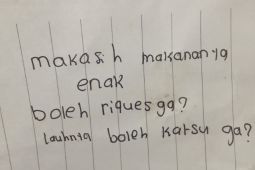 makasih makanannya
enak
boleh riques gg?
lauhnya boleh karsu ga?